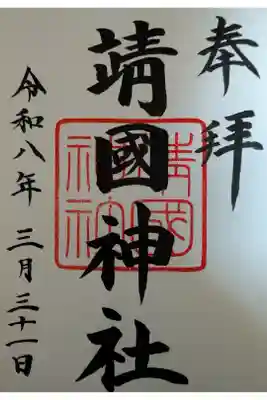 奉拝
靖國神社
令和八年 三月三十一日